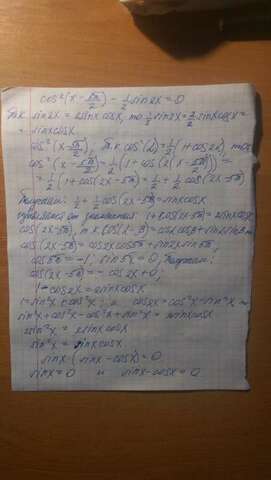 cos²(x-5π/2) - 1/2 sin2x = 0
Так sin2x = 2sinx cosx, то 1/2 sin2x = 2/2 sinx cosx =
= sinx cosx
cos²(x-5π/2), т.к cos²(α) = 1/2(1+cos2α), то
cos²(x-5π/2) = 1/2(1+cos(2(x-5π/2))) =
= 1/2(1+cos(2x-5π) = 1/2 + 1/2 cos(2x-5π)
Получаем: 1/2 + 1/2 cos(2x-5π) = sinxcosx
от 1+cos(2x-5π) = 2sinxcosx
cos(2x-5π), т.к cos(α-β) = cosαcosβ + sinαsinβ
cos(2x-5π) = cos2xcos5π + sin2xsin5π,
cos5π = -1, sin5π = 0, Получаем:
cos(2x-5π) = -cos2x+0;
1-cos2x = 2sinxcosx
1 = sin²x + cos²x; и cos2x = cos²x - sin²x
sin²x + cos²x - cos²x + sin²x = 2sinxcosx
2sin²x = 2sinxcosx
sin²x = sinxcosx
sinx(sinx-cosx) = 0
sinx = 0 и sinx-cosx = 0